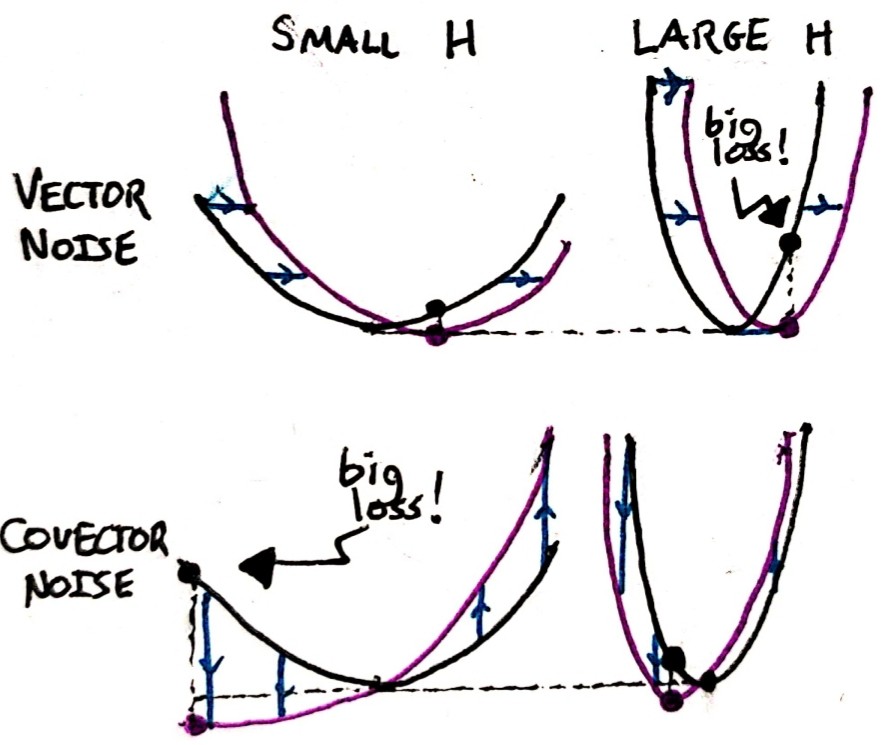 SMALL H
LARGE H
VECTOR
NOISE
big
loss!
COVECTOR
NOISE
big
loss!